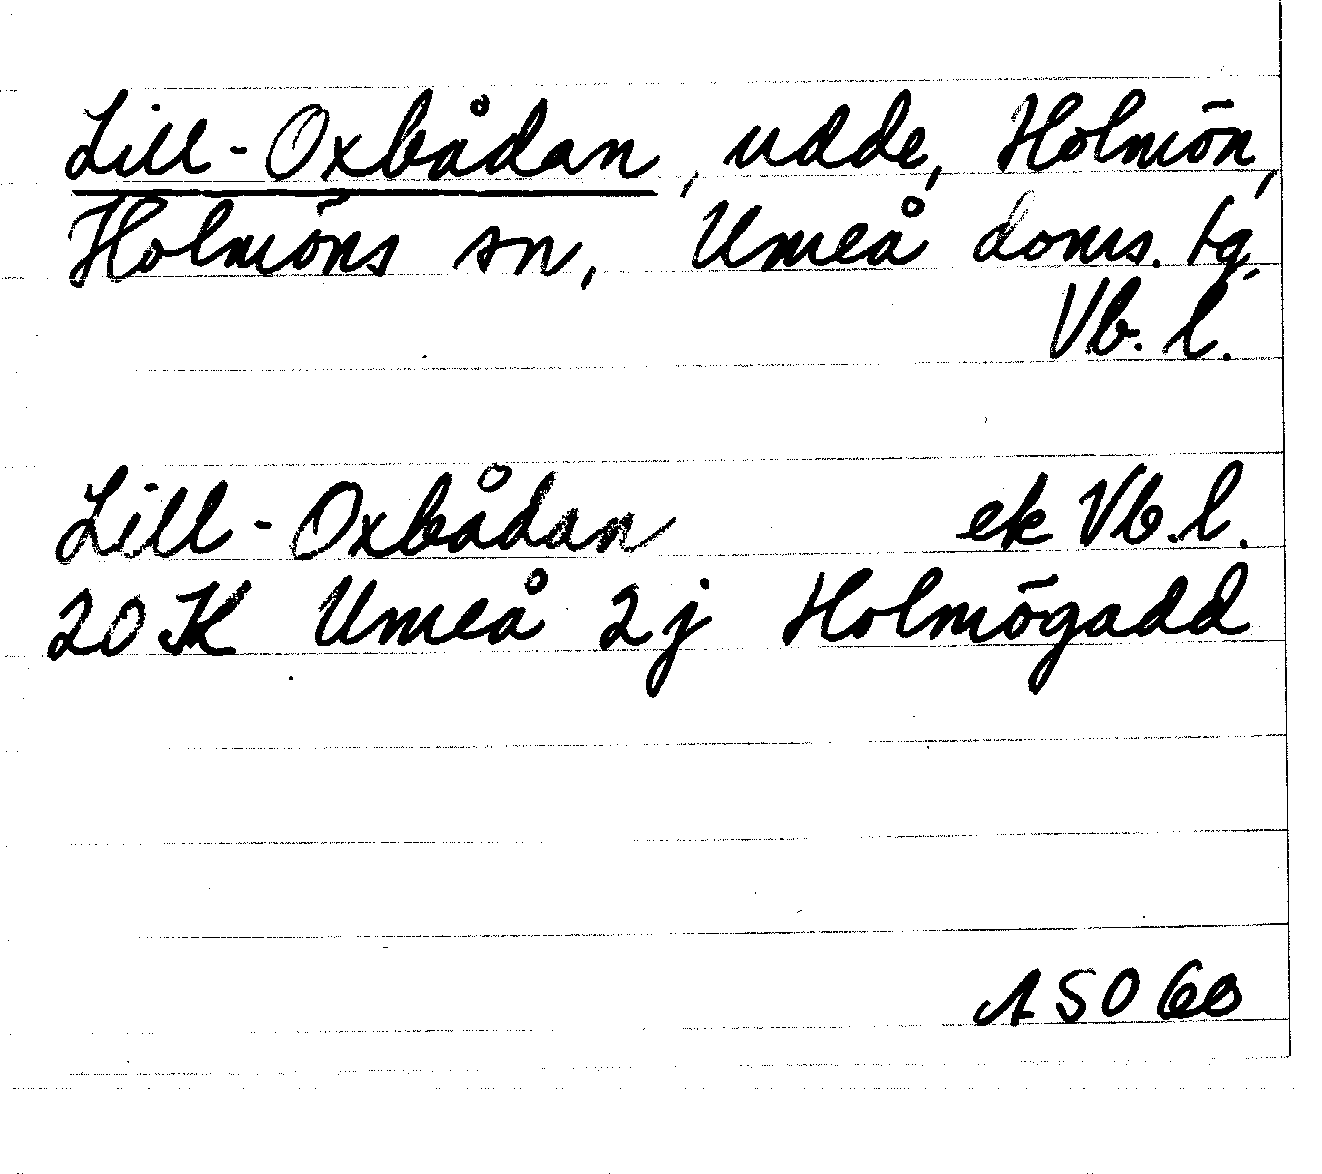 Lill-Oxbådan, udde, Holmön,
Holmöns sn, Umeå doms. tg.
Vb. l.
Lill-Oxbådan ek Vb.l.
20K Umeå 2j Holmögadd